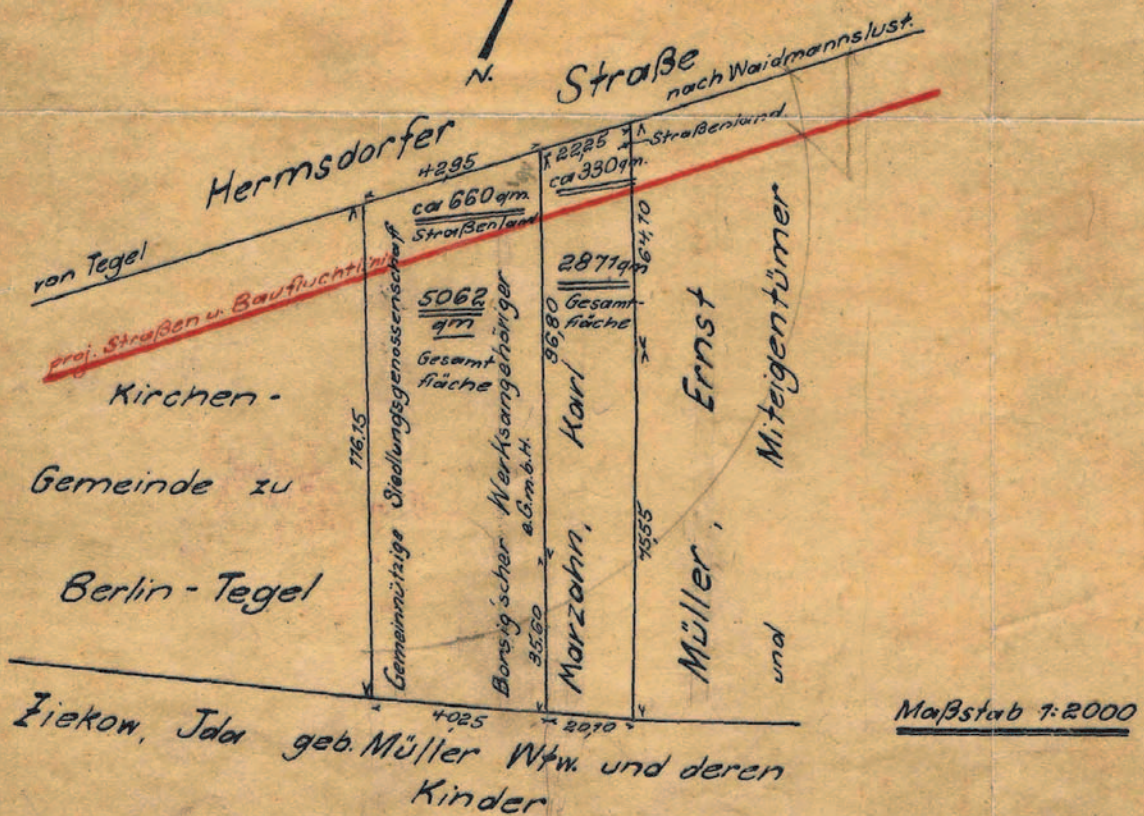 N.
Hermsdorfer Straße
nach Waidmannslust.
von Tegel
42,95
22,25
Straßenland.
ca 660 qm.
Straßenland
ca 330 qm.
proj. Straßen u. Baufluchtlinie
5062
qm
Gesamt
fläche
2871 qm
Gesamt-
fläche
64,70
96,80
116,15
75,55
35,60
Kirchen-
Gemeinde zu
Berlin-Tegel
Gemeinnützige Siedlungsgenossenschaft
Borsig'scher Werksangehöriger
e.G.m.b.H.
Marzahn, Karl
Müller, Ernst
und Miteigentümer
40,25
20,70
Ziekow, Ida geb. Müller Wtw. und deren
Kinder
Maßstab 1:2000